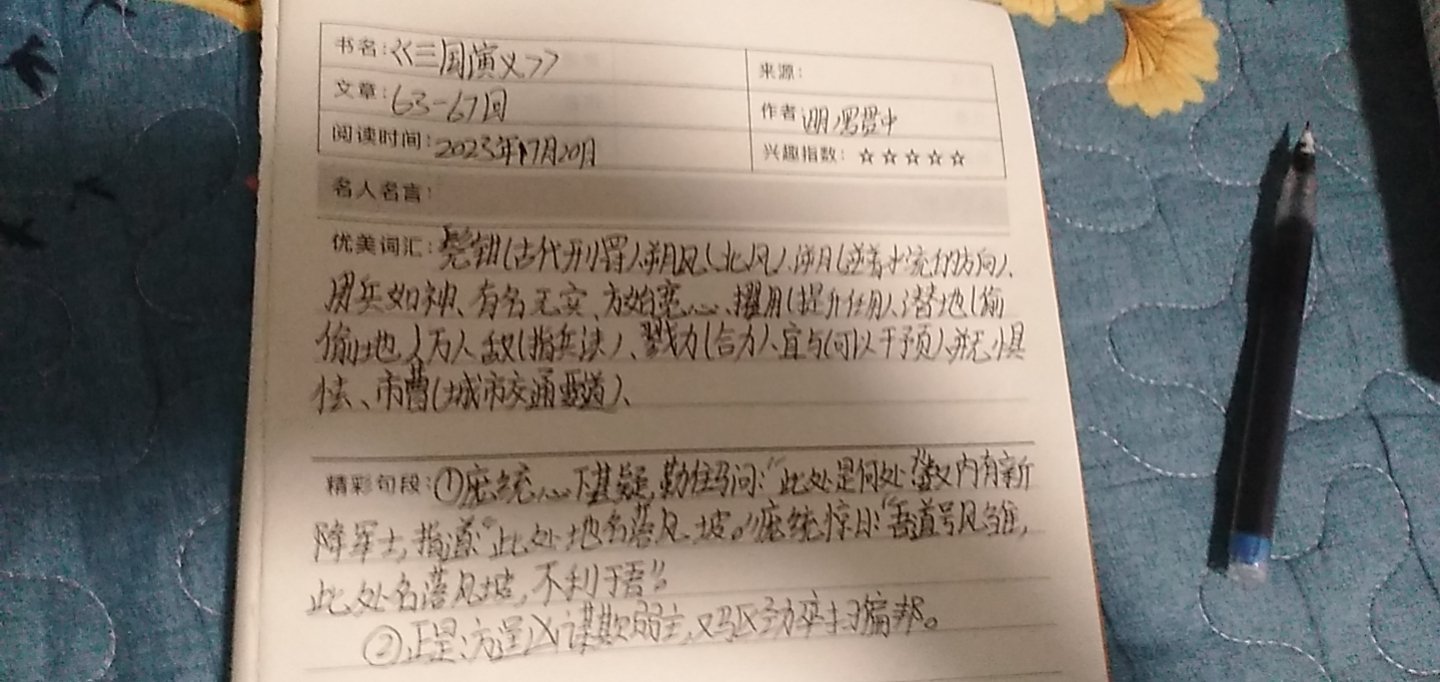 书名:《三国演义》
来源:
文章:63-67回
作者 明.罗贯中
阅读时间:2023年7月20日
兴趣指数:☆☆☆☆☆
名人名言:
优美词汇:髡钳(古代刑罚)、朔风(北风)、(逆着水流的方向)、
用兵如神、有名无实、方始宽心、擢用(提升任用)、潜地(偷
偷地)、万人敌(指兵法)、戮力(合力)、宜与(可以干预)、并无惧
怯、市曹(城市交通要道)、
精彩句段:①庞统心下甚疑,勒住马问:“此处是何处?”数内有新
降军士,指道:“此处地名落凤坡。”庞统惊曰:“吾道号凤雏,
此处名落凤坡,不利于吾”。
②正是:方逞凶谋欺弱主,又驱劲卒扫偏邦。